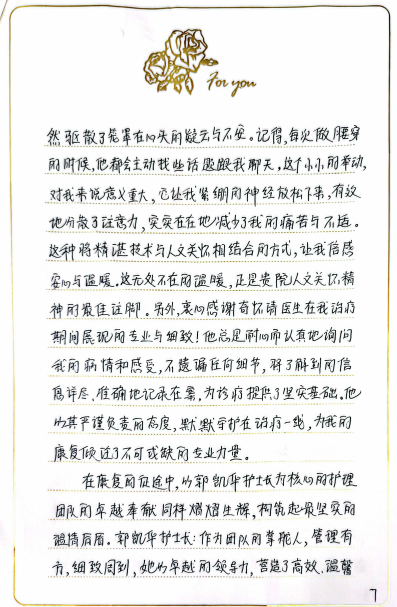 For you
然驱散了笼罩在心头的疑云与不安。记得,每次做腰穿
的时候,他都会主动找些话题跟我聊天,这个小小的举动,
对我来说意义重大,它让我紧绷的神经放松下来,有效
地分散了注意力,实实在在地减少了我的痛苦与不适。
这种将精湛技术与人文关怀相结合的方式,让我倍感
安心与温暖。这无处不在的温暖,正是贵院人文关怀精
神的最佳注脚。另外,衷心感谢奇怀请医生在我治疗
期间展现的专业与细致!他总是耐心而认真地询问
我的病情和感受,不遗漏任何细节,将了解到的信
息详尽、准确地记录在案,为诊疗提供了坚实基础。他
以其严谨负责的态度,默默守护在治疗一线,为我的
康复倾注了不可或缺的专业力量。
在康复的征途中,以郭凯华护士长为核心的护理
团队的卓越奉献同样熠熠生辉,构筑起最坚实的
温情后盾。郭凯华护士长:作为团队的掌舵人,管理有
方,细致周到,她以卓越的领导力,营造了高效、温馨
7